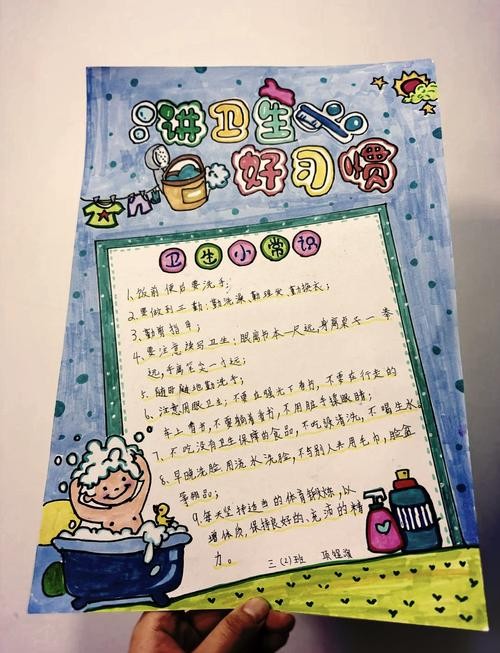 讲卫生
好习惯
卫生小常识
1、饭前便后要洗手;
2、要做到三勤:勤洗澡、勤理发、勤换衣;
3、勤剪指甲;
4、要注意读写卫生:眼离书本一尺远,身离桌子一拳
远,手离笔尖一寸远;
5、随时随地勤洗手;
6、注意用眼卫生:不要在强光下看书,不要在行走的
车上看书,不要躺着看书,不用脏手揉眼睛;
7、不吃没有卫生保障的食品,不吃袋清洗,不喝生水
8、早晚洗脸用流水洗脸,不与别人共用毛巾,脸盆
等用品;
9、每天坚持适当的体育锻炼,以
增体质,保持良好的、充沛的精
力。
三(2)班